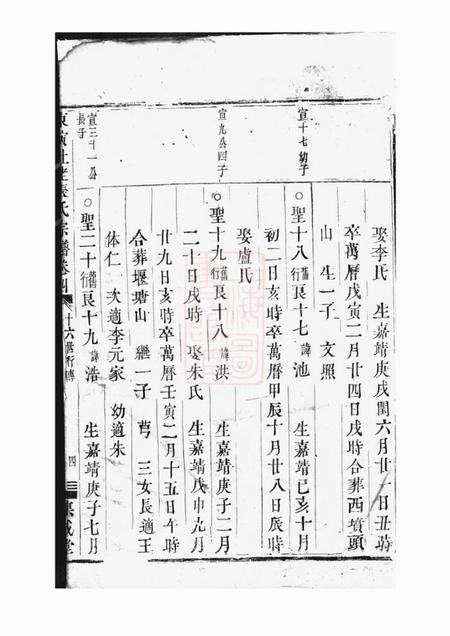 娶李氏 生嘉靖庚戌閏六月廿一日丑時
卒萬曆戊寅二月廿四日戌時合葬西墳頭
山 生一子 文照
宣十七幼子
○聖十八舊行良十七諱池 生嘉靖己亥十月
初二日亥時卒萬曆甲辰十月廿八日辰時
娶盧氏
宣九公四子
○聖十九舊行良十八諱洪 生嘉靖庚子二月
二十日戌時 娶朱氏 生嘉靖戊申九月
廿九日亥時卒萬曆壬寅二月十五日午時
合葬堰塘山 繼一子 三女長適王
体仁 次適李元家 幼適朱
宣三十一公長子
○聖二十舊行良十九諱浩 生嘉靖庚子七月
張氏宗譜卷四 十六世行傳 四